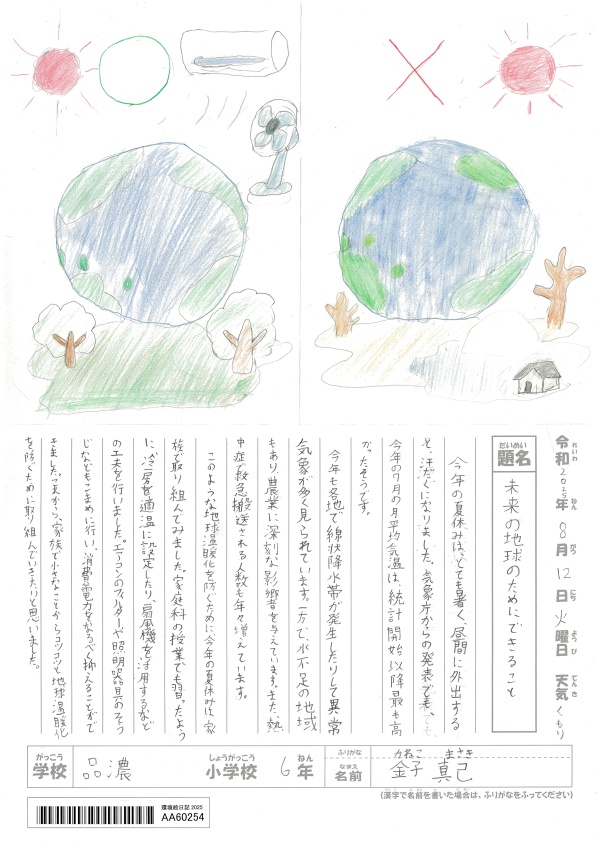 令和2025年8月12日火曜日 天気くもり
れいわ ねん がつ にち ようび てんき
だいめい
題名 未来の地球のためにできること
今年の夏休みは、とても暑く、昼間に外出する
と、汗だくになりました。気象庁からの発表でも、
今年の7月の月平均気温は、統計開始以降最も高
かったそうです。
今年も各地で線状降水帯が発生したりして異常
気象が多く見られています。一方で、水不足の地域
もあり、農業に深刻な影響を与えています。また、熱
中症で救急搬送される人数も年々増えています。
このような地球温暖化を防ぐために、今年の夏休みは、家
族で取り組んでみました。家庭科の授業でも習ったよう
に、冷房を適温に設定したり、扇風機を活用するなど
の工夫を行いました。エアコンのフィルターや照明器具のそう
じなどもこまめに行い、消費電力をなるべく抑えることがで
きました。これからも、家族で小さなことからコツコツと地球温暖化
を防ぐために取り組んでいきたいと思いました。
がっこう しょうがっこう ねん ふりがな かねこ まさき
学校 品濃 小学校 6年 なまえ 名前 金子 真己
(漢字で名前を書いた場合は、ふりがなをふってください)
環境絵日記 2025
AA60254